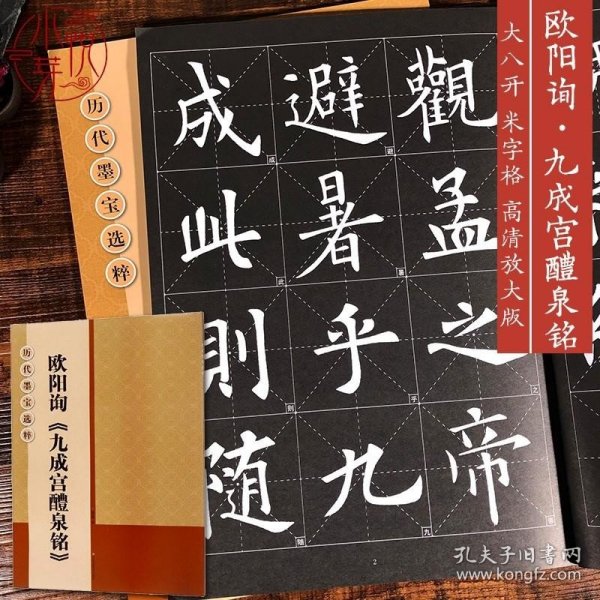 欧阳询·九成宫醴泉铭
大八开 米字格 高清放大版
历代墨宝选粹
觀孟之帝
避暑乎九
成此則隨
2
历代墨宝选粹
欧阳询《九成宫醴泉铭》
孔夫子旧书网
www.kongfz.com